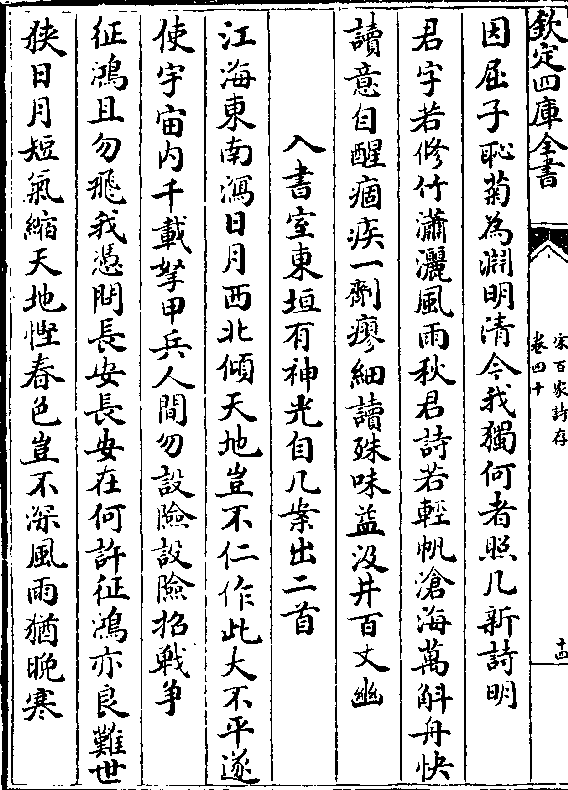 欽定四庫全書
宋百家詩存
卷四十
十四
因屈子恥菊為淵明清今我獨何者照几新詩明
君字若修竹瀟灑風雨秋君詩若輕帆滄海萬斛舟快
讀意自醒痼疾一劑瘳細讀殊味益汲井百丈幽
入書室東垣有神光自几案出二首
江海東南瀉日月西北傾天地豈不仁作此大不平遂
使宇宙內千載拏甲兵人間勿設險設險招戰爭
征鴻且勿飛我憑問長安長安在何許征鴻亦良難世
狹日月短氣縮天地慳春色豈不深風雨猶晚寒